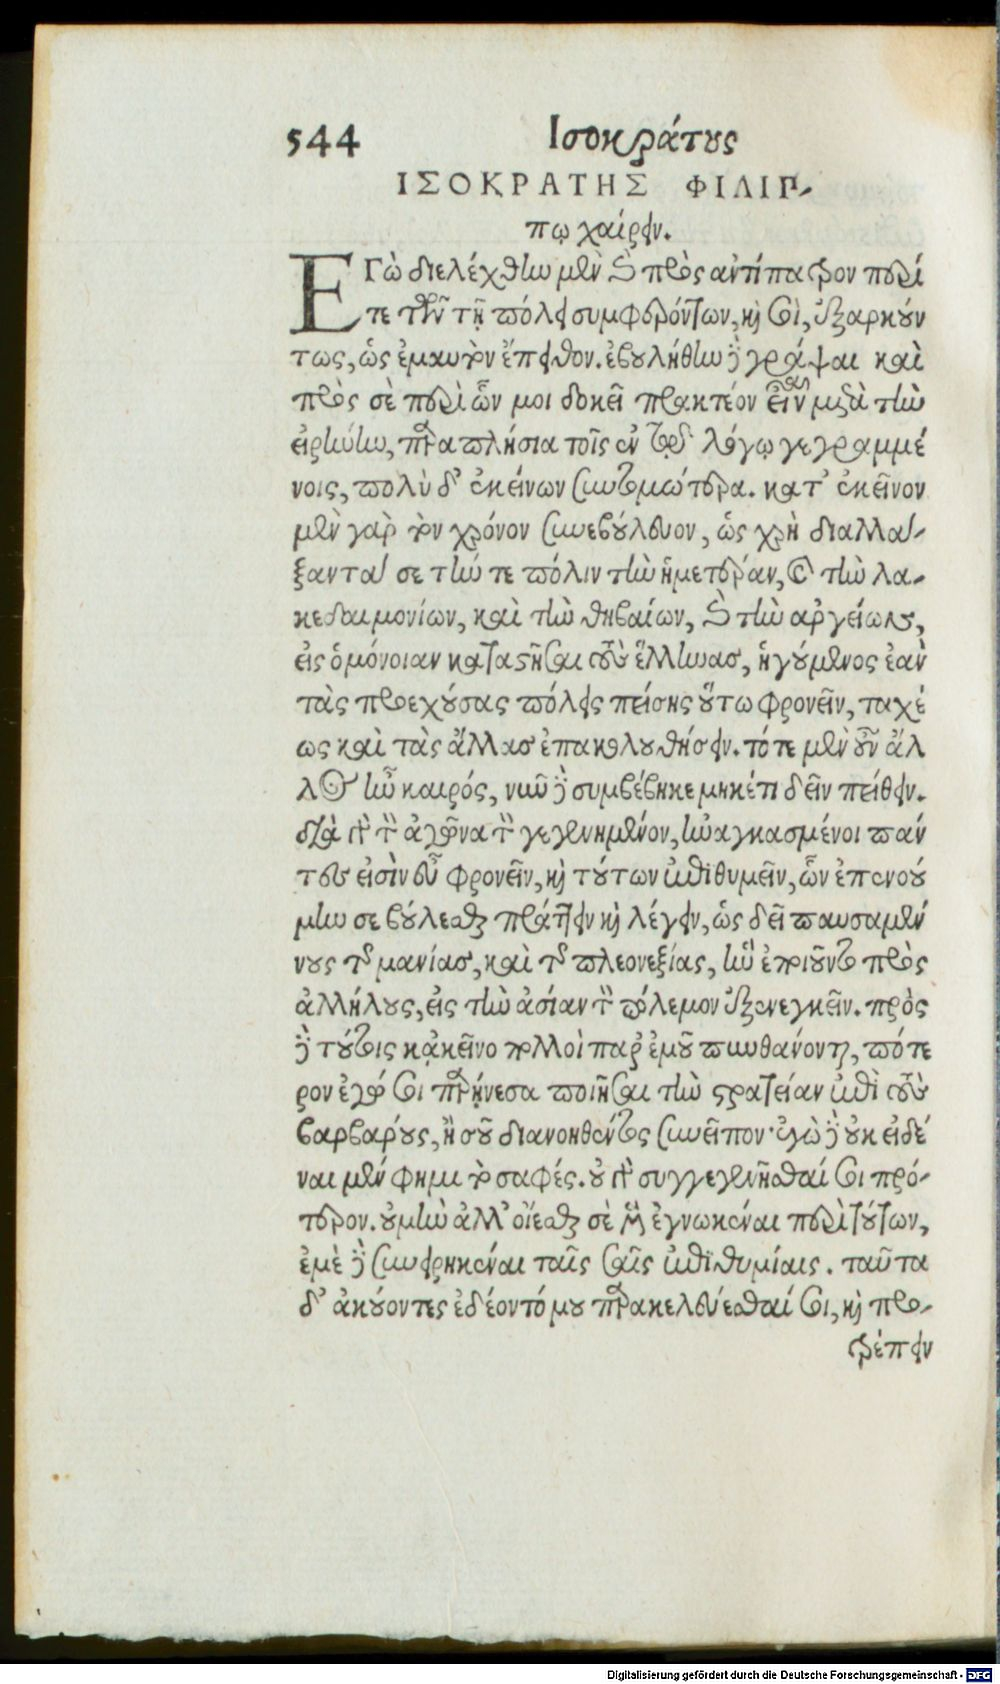 544 Ἰσοκράτους
ΙΣΟΚΡΑΤΗΣ ΦΙΛΙΠ-
πῳ χαίρειν.
ΕΓὼ διελέχθην μὲν καὶ πρὸς ἀντίπατρον περί
τε τῶν τῇ πόλει συμφερόντων, καὶ σοὶ, ἐξαρκούν
τως, ὡς ἐμαυτὸν ἔπειθον. ἐβουλήθην δὲ γράψαι καὶ
πρὸς σὲ περὶ ὧν μοι δοκεῖ πρακτέον εἶναι μετὰ τὴν
εἰρήνην, παραπλήσια τοῖς ἐν τῷ λόγῳ γεγραμμέ
νοις, πολὺ δ' ἐκείνων συντομώτερα. κατ' ἐκεῖνον
μὲν γὰρ τὸν χρόνον συνεβούλευον, ὡς χρὴ διαλλά-
ξαντά σε τήν τε πόλιν τὴν ἡμετέραν, καὶ τὴν λα-
κεδαιμονίων, καὶ τὴν θηβαίων, καὶ τὴν ἀργείων,
εἰς ὁμόνοιαν καταστῆσαι τοὺς ἕλληνας, ἡγούμενος ἐὰν
τὰς προεχούσας πόλεις πείσῃς οὕτω φρονεῖν, ταχέ
ως καὶ τὰς ἄλλας ἐπακολουθήσειν. τότε μὲν οὖν ἄλ
λος ἦν καιρός, νῦν δὲ συμβέβηκε μηκέτι δεῖν πείθειν.
διὰ γὰρ τὸν ἀγῶνα τὸν γεγενημένον, ἠναγκασμένοι πάν
τες εἰσὶν εὖ φρονεῖν, καὶ τούτων ἐπιθυμεῖν, ὧν ὑπενοού
μην σε βούλεσθαι πράττειν καὶ λέγειν, ὡς δεῖ παυσαμέ
νους τῆς μανίας, καὶ τῆς πλεονεξίας, ἣν ἐποιοῦντο πρὸς
ἀλλήλους, εἰς τὴν ἀσίαν τὸν πόλεμον ἐξενεγκεῖν. πρὸς
δὲ τούτοις κἀκεῖνο πολλοὶ παρ' ἐμοῦ πυνθάνονται, πότε
ρον ἐγώ σοι παρῄνεσα ποιῆσαι τὴν στρατείαν ἐπὶ τοὺς
βαρβάρους, ἢ σοῦ διανοηθέντος συνεῖπον· ἐγὼ δὲ οὐκ εἰδέ
ναι μέν φημι τὸ σαφές. οὐ γὰρ συγγεγενῆσθαί σοι πρό-
τερον. οὐμὴν ἀλλ' οἴεσθαι σὲ μὲν ἐγνωκέναι περὶ τούτων,
ἐμὲ δὲ συνειρηκέναι ταῖς σαῖς ἐπιθυμίαις. ταῦτα
δ' ἀκούοντες ἐδέοντό μου παρακελεύεσθαί σοι, καὶ προ-
τρέπειν
Digitalisierung gefördert durch die Deutsche Forschungsgemeinschaft - DFG